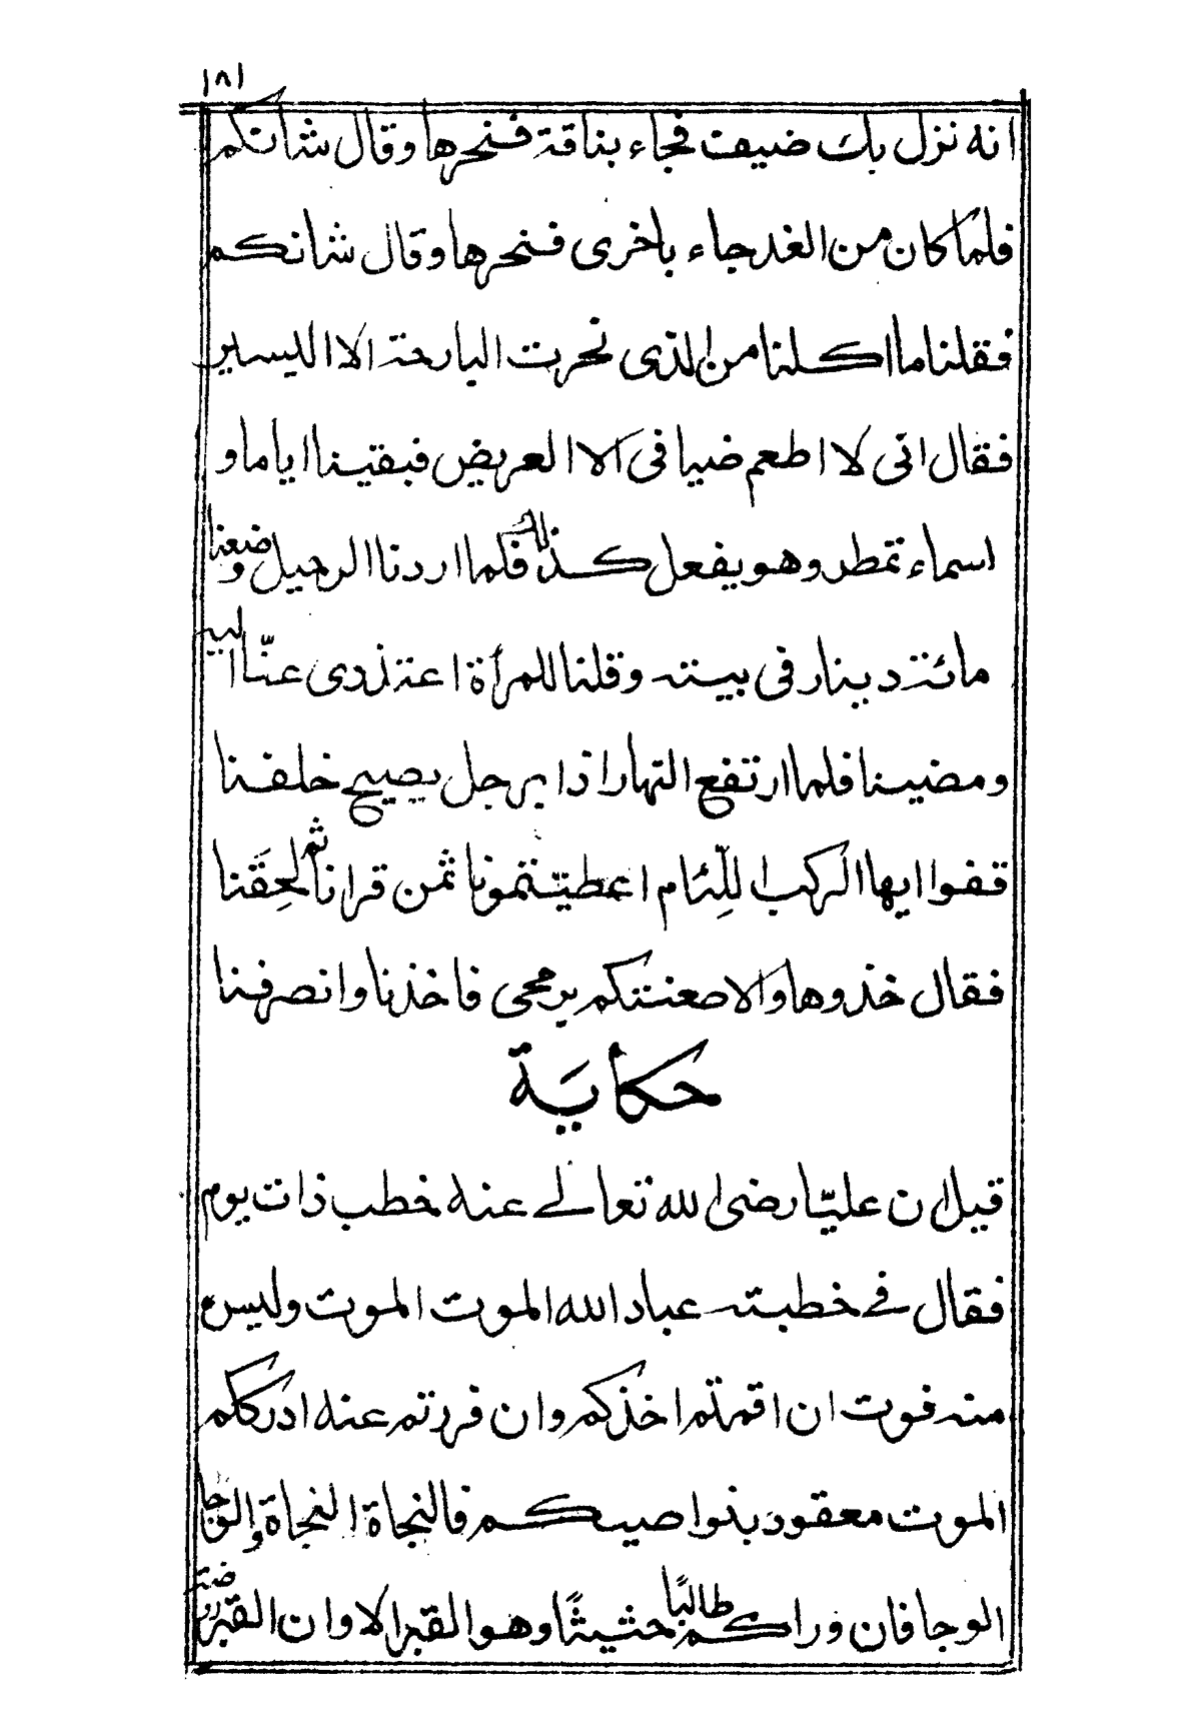 ١٨١
انه نزل بك ضيف فجاء بناقة فنحرها وقال شأنكم
فلما كان من الغد جاء باخرى فنحرها وقال شانكم
فقلنا ما اكلنا من الذى نحرت البارحة الا اليسير
فقال انى لا اطعم ضيافى الا الغريض فبقينا اياما و
اسماء تمطر وهو يفعل كذلك فلما اردنا الرحيل وضعنا
مائة دينار فى بيته وقلنا للمرأة اعتذرى عنّا اليه
ومضينا فلما ارتفع النهار اذا برجل يصيح خلفنا
قفوا ايها الركب اللِّئام اعطيتمونا ثمن قرانا ثم لحِقَنا
فقال خذوها والا صعنتكم برمحى فاخذنا وانصرفنا
حكاية
قيل ان عليّا رضى الله تعالى عنه خطب ذات يوم
فقال فى خطبته عباد الله الموت الموت وليس
منه فوت ان اقمتم اخذكم وان فررتم عنه ادرككم
الموت معقود بنواصيكم فالنجاة النجاة والوجا
الوجا فان وراكم طالبًا حثيثًا وهو القبر الا وان القبر روضة